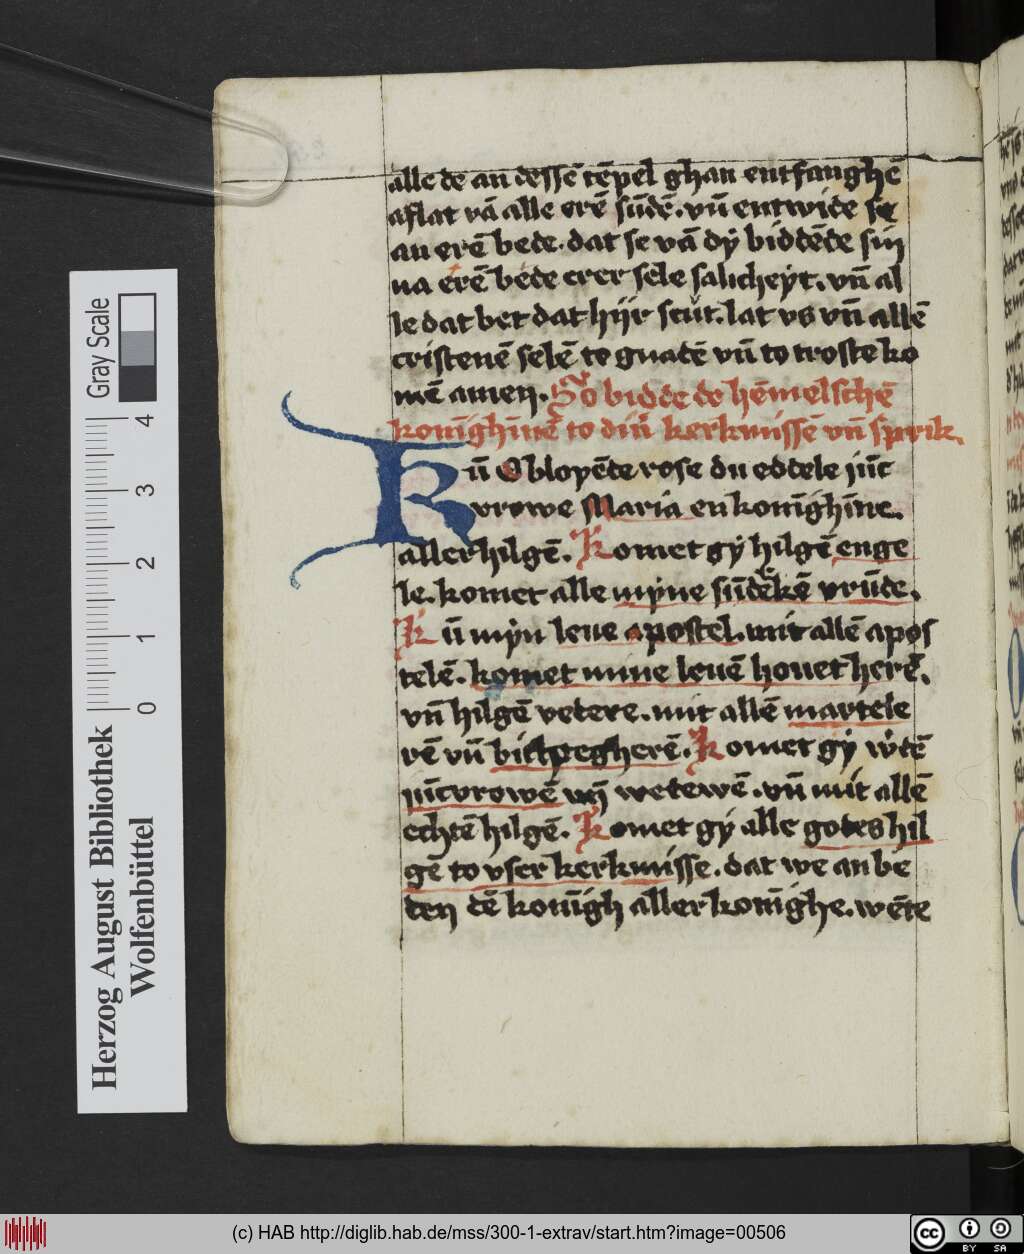 alle de an desse̅ te̅pel ghan entfanghe̅
aflat va̅ alle ere̅ su̅de̅. vn̅ entwide se
an ere̅ bede. dat se va̅ dy bidde̅de sin
na ere̅ bede erer sele salicheyt. vn̅ al
le dat bet dat hijr scut. lat vs vn̅ alle̅
cristene̅ sele̅ to gnade̅ vn̅ to troste ko
me̅ amen. So bidde de he̅melsche̅
koni̅ghi̅ne̅ to din̅ kerkmisse̅ vn̅ sprik.
Ku̅ O bloye̅de rose du eddele iu̅c
vrowe Maria en koni̅ghi̅ne.
allerhilge̅. Komet gy hilge̅ enge
le. komet alle myne su̅deke̅ vru̅de.
Ku̅ myn leue apostel. mit alle̅ apos
tele̅. komet mine leue̅ houet here̅.
vn̅ hilge̅ vetere. mit alle̅ martele
re̅ vn̅ bisspeghere̅. Komet gy rite̅
iu̅cvrowe̅ vn̅ wetewe̅. vn̅ mit alle̅
echte̅ hilge̅. Komet gy alle godes hil
ge̅ to vser kerkmisse. dat we an be
den de̅ koni̅gh aller koni̅ghe. we̅te
Gray Scale
4
3
2
1
0
Herzog August Bibliothek
Wolfenbüttel
(c) HAB http://diglib.hab.de/mss/300-1-extrav/start.htm?image=00506
cc BY SA